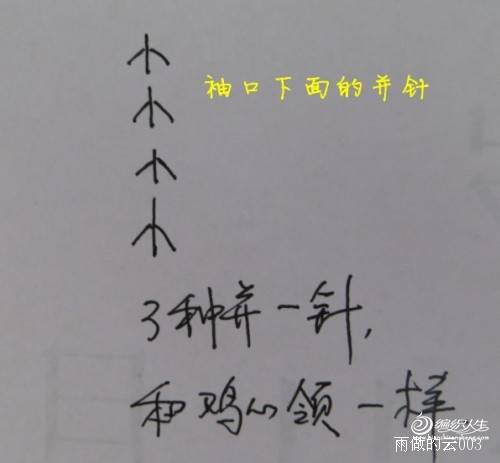 袖口下面的并针
3种并一针,
和鸡心领一样
编织人生
雨做的云003